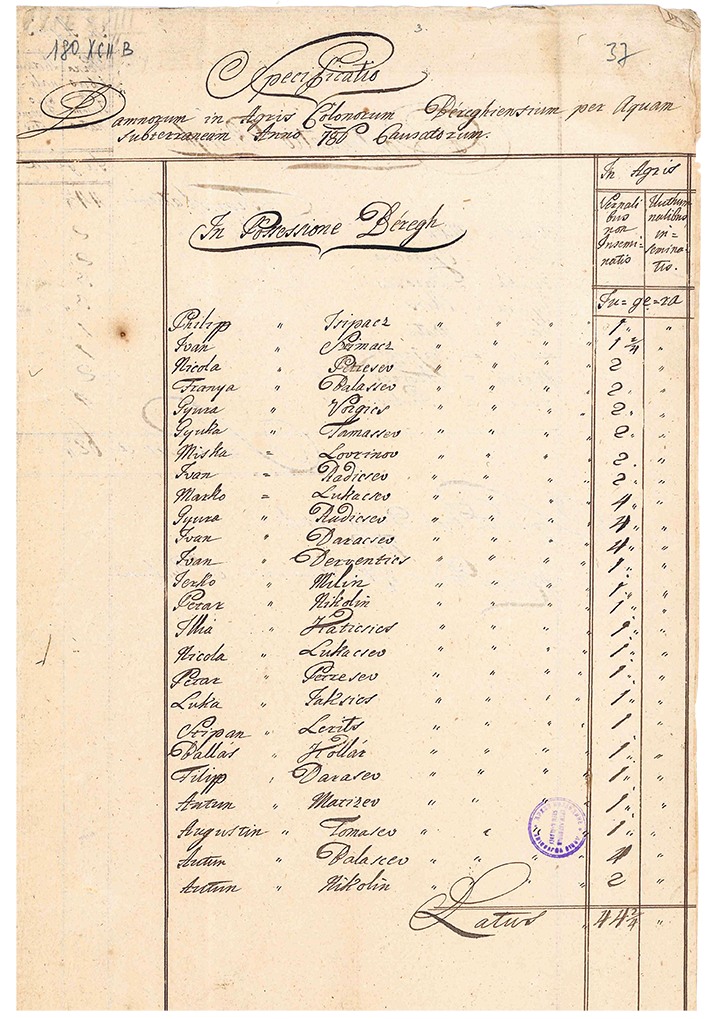 180 XCII B
3.
37
Specificatio
Damnorum in Agris Colonorum Béreghiensium per Aquam
subterraneam Anno Causatorum.
In Agris
In Possessione Béregh
Vernali bus non Insemi= natio
Authum nalibus in= semina tis.
Iu= ge= ra
Philip " " " " " 1 " "
Ivan " Stimacz " " " " 1 2/4 "
Nicola " Petresev " " " " 2 "
Franya " Balassev " " " " 2 "
Gyura " Vorgics " " " " 2 "
Gyuka " Tamassev " " " " 2 "
Miska = Lovrinov " " " " 2 "
Ivan = Radicsev " " " " 2 "
Marko = Lukacsev " " " " 4 "
Gyura " Radicsev " " " " 4 "
Ivan " Daracsev " " " " 4 "
Ivan " Derventics " " " " 1 "
Jerko " Milin " " " " 1 "
Petar " Nikolin " " " " 1 "
Illia " Haticsics " " " " 1 "
Nicola " Lukacsev " " " " 1 "
Petar " Petresev " " " " 1 "
Luka " Jaksics " " " " 1 "
Stipan " Lerits " " " " 1 "
Ballas " Hollár " " " " 1 "
Filipp " Darasev " " " " 1 "
Antun " Matizev " " " " 1 "
Augustin " Tomasev " " " 1 "
Antun " Balascev " " " " 4 "
Antun " Nikolin " " " " 2 "
Latus " 44 2/4 "